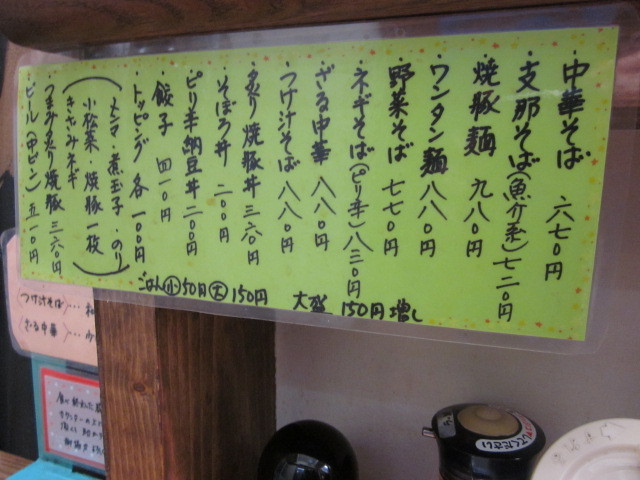 ・中華そば 六七〇円
・支那そば(魚介系)七二〇円
・焼豚麺 九八〇円
・ワンタン麺 八八〇円
・野菜そば 七七〇円
・ネギそば(ピリ辛)八三〇円
・ざる中華 八八〇円
・つけ汁そば 八八〇円
・炙り焼豚丼 三六〇円
・そぼろ丼 二〇〇円
・ピリ辛納豆丼 二〇〇円
・餃子 四一〇円
・トッピング 各一〇〇円
(メンマ・煮玉子・のり
小松菜・焼豚一枚
きざみネギ)
・つまみ炙り焼豚 三六〇円
・ビール(中ビン)五一〇円
ごはん小50円 大150円
大盛 150円増し
(つけ汁そば)…
(ざる中華)…